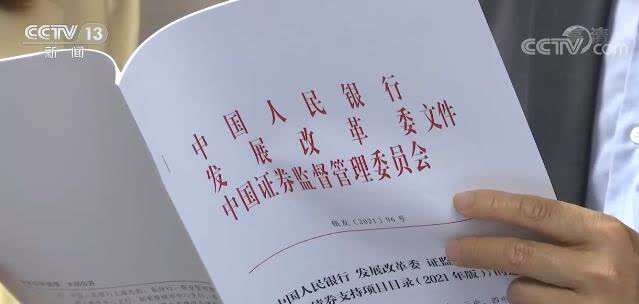 CCTV 13
新闻
CCTV.com
中国人民银行
发展改革委文件
中国证券监督管理委员会
银发〔2021〕96号
中国人民银行 发展改革委 证监
债券支持项目目录(2021年版)》的通